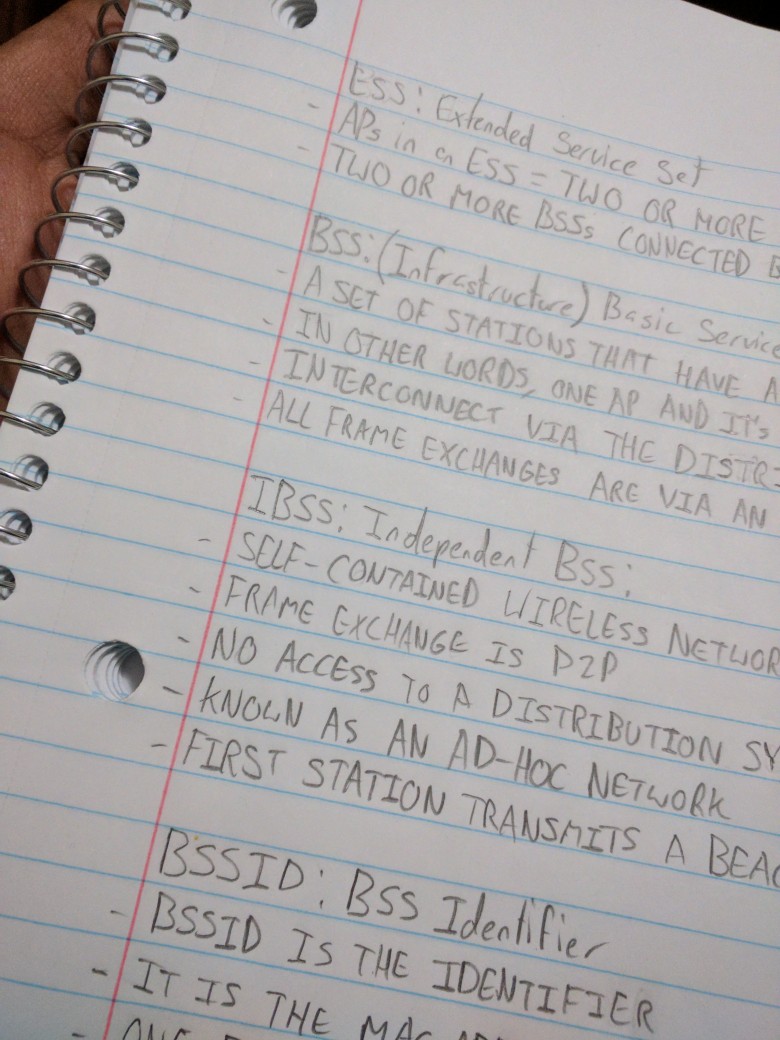 ESS: Extended Service Set
- APs in a ESS = TWO OR MORE
- TWO OR MORE BSSs CONNECTED
BSS: (Infrastructure) Basic Service
- A SET OF STATIONS THAT HAVE A
- IN OTHER WORDS, ONE AP AND IT'S
- INTERCONNECT VIA THE DISTR-
- ALL FRAME EXCHANGES ARE VIA AN
IBSS: Independent BSS:
- SELF-CONTAINED WIRELESS NETWOR
- FRAME EXCHANGE IS P2P
- NO ACCESS TO A DISTRIBUTION SY
- KNOWN AS AN AD-HOC NETWORK
- FIRST STATION TRANSMITS A BEAC
BSSID: BSS Identifier
- BSSID IS THE IDENTIFIER
- IT IS THE MAC
-